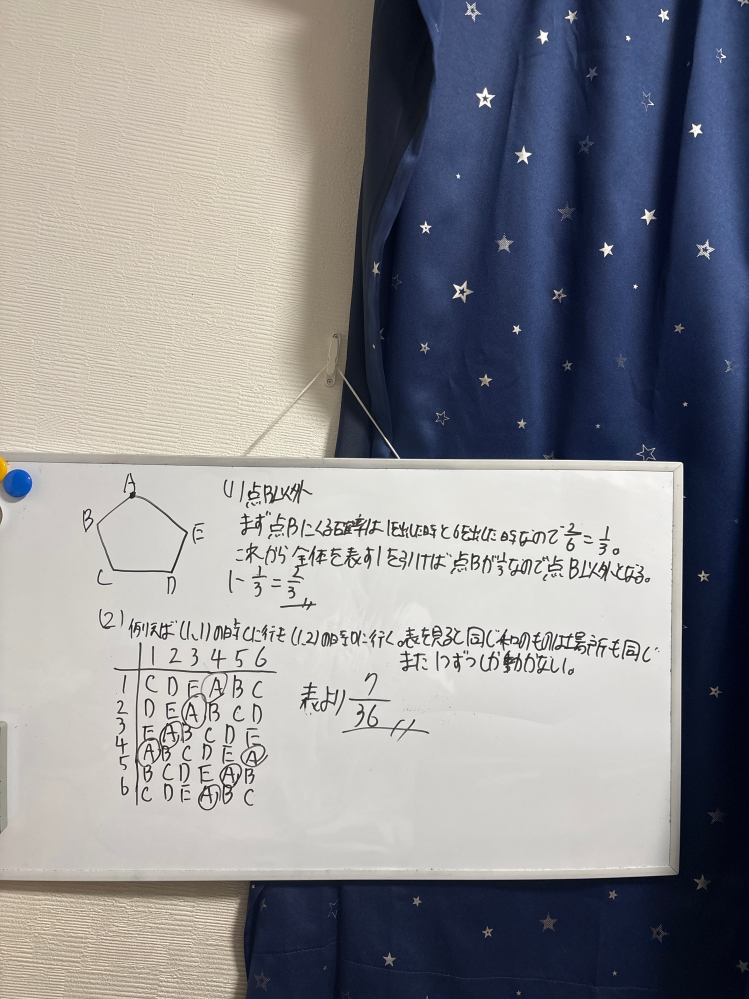 A
B
E
C
D
(1)点B以外
まず点Bにくる確率は1を出した時と6を出した時なので2/6=1/3。
これから全体を表す1を引けば点Bが1/3なので点B以外となる。
1-1/3=2/3
(2)例えば(1,1)の時Cに行き(1,2)の時Dに行く。表を見ると同じ和のものは場所も同じ
また1つずつしか動かない。
1 2 3 4 5 6
1 C D E A B C
2 D E A B C D
3 E A B C D E
4 A B C D E A
5 B C D E A B
6 C D E A B C
表より 7/36